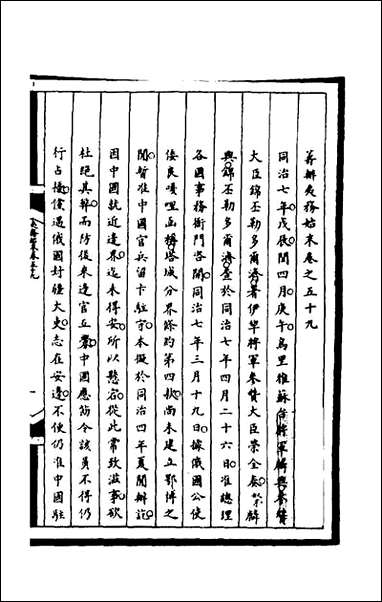 籌辦夷務始末卷之五十九
同治七年戊辰閏四月庚午烏里雅蘇台將軍麟興參贊
大臣錦丕勒多爾濟署伊犂將軍參贊大臣榮全奏竊麟
興錦丕勒多爾濟查於同治七年四月二十六日准總理
各國事務衙門咨開同治七年三月十九日據俄國公使
倭良嘎哩函稱塔城分界條約第四款尚未建立鄂博之
間暫准中國官兵留卡駐守本擬於同治四年夏間辦訖
因中國就近邊界迄未得安所以懸宕從此常致滋事欲
杜絕其弊而防後來邊官立釁中國應飭令該員不得仍
行占據儻遇俄國封疆大吏志在安邊不使仍准中國駐
夷務始末卷五十九
一